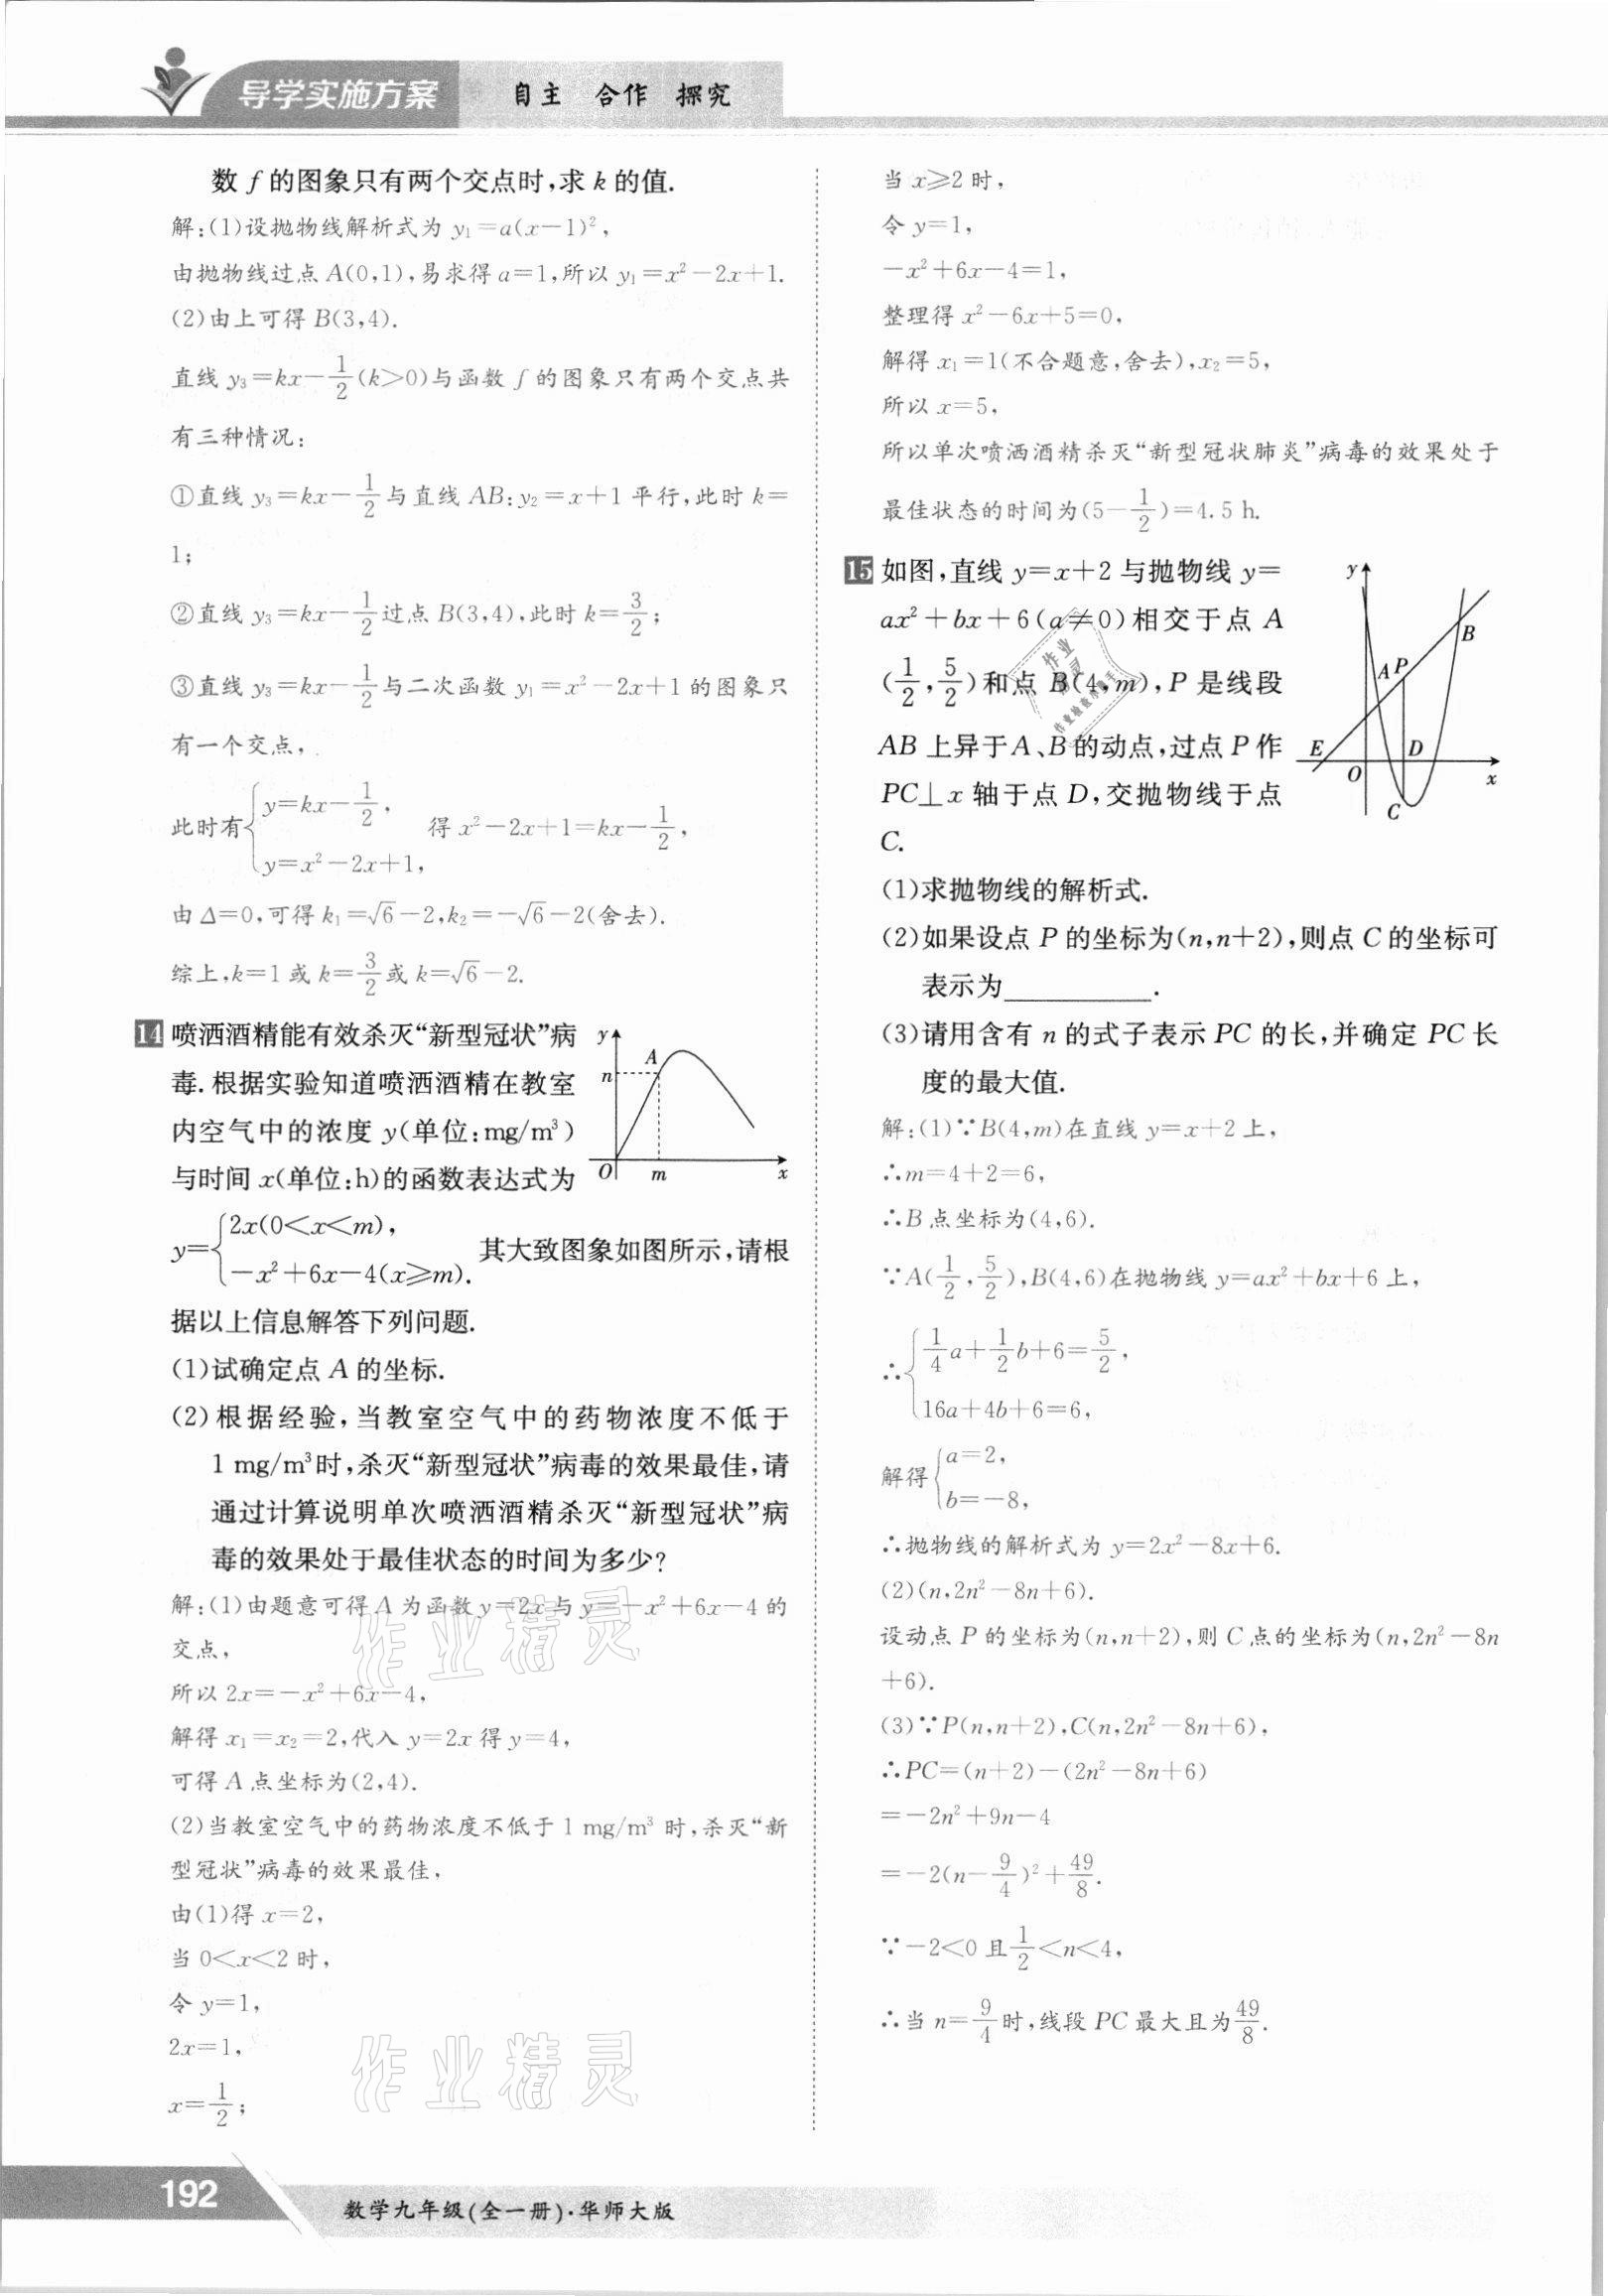 导学实施方案
自主 合作 探究
数 f 的图象只有两个交点时,求 k 的值.
解:(1)设抛物线解析式为 y₁=a(x-1)²,
由抛物线过点 A(0,1),易求得 a=1,所以 y₁=x²-2x+1.
(2)由上可得 B(3,4).
直线 y₃=kx-1/2(k>0)与函数 f 的图象只有两个交点共
有三种情况:
①直线 y₃=kx-1/2与直线 AB:y₂=x+1 平行,此时 k=
1;
②直线 y₃=kx-1/2过点 B(3,4),此时 k=3/2;
③直线 y₃=kx-1/2与二次函数 y₁=x²-2x+1 的图象只
有一个交点,
此时有{y=kx-1/2, y=x²-2x+1, 得 x²-2x+1=kx-1/2,
由 Δ=0,可得 k₁=√6-2,k₂=-√6-2(舍去).
综上,k=1 或 k=3/2或 k=√6-2.
14 喷洒酒精能有效杀灭“新型冠状”病
毒.根据实验知道喷洒酒精在教室
内空气中的浓度 y(单位:mg/m³)
与时间 x(单位:h)的函数表达式为
y={2x(0<x<m), -x²+6x-4(x≥m). 其大致图象如图所示,请根
据以上信息解答下列问题.
y
A
n
O
m
x
(1)试确定点 A 的坐标.
(2)根据经验,当教室空气中的药物浓度不低于
1 mg/m³时,杀灭“新型冠状”病毒的效果最佳,请
通过计算说明单次喷洒酒精杀灭“新型冠状”病
毒的效果处于最佳状态的时间为多少?
解:(1)由题意可得 A 为函数 y=2x 与 y=-x²+6x-4 的
交点,
所以 2x=-x²+6x-4,
解得 x₁=x₂=2,代入 y=2x 得 y=4,
可得 A 点坐标为(2,4).
(2)当教室空气中的药物浓度不低于 1 mg/m³ 时,杀灭“新
型冠状”病毒的效果最佳,
由(1)得 x=2,
当 0<x<2 时,
令 y=1,
2x=1,
x=1/2;
当 x≥2 时,
令 y=1,
-x²+6x-4=1,
整理得 x²-6x+5=0,
解得 x₁=1(不合题意,舍去),x₂=5,
所以 x=5,
所以单次喷洒酒精杀灭“新型冠状肺炎”病毒的效果处于
最佳状态的时间为(5-1/2)=4.5 h.
15 如图,直线 y=x+2 与抛物线 y=
ax²+bx+6(a≠0)相交于点 A
(1/2,5/2)和点 B(4,m),P 是线段
AB 上异于A、B的动点,过点 P 作
PC⊥x 轴于点 D,交抛物线于点
C.
y
B
A P
E
D
O
x
C
(1)求抛物线的解析式.
(2)如果设点 P 的坐标为(n,n+2),则点 C 的坐标可
表示为__________.
(3)请用含有 n 的式子表示 PC 的长,并确定 PC 长
度的最大值.
解:(1)∵B(4,m)在直线 y=x+2 上,
∴m=4+2=6,
∴B 点坐标为(4,6).
∵A(1/2,5/2),B(4,6)在抛物线 y=ax²+bx+6 上,
∴{1/4a+1/2b+6=5/2, 16a+4b+6=6,
解得{a=2, b=-8,
∴抛物线的解析式为 y=2x²-8x+6.
(2)(n,2n²-8n+6).
设动点 P 的坐标为(n,n+2),则 C 点的坐标为(n,2n²-8n
+6).
(3)∵P(n,n+2),C(n,2n²-8n+6),
∴PC=(n+2)-(2n²-8n+6)
=-2n²+9n-4
=-2(n-9/4)²+49/8.
∵-2<0 且1/2<n<4,
∴当 n=9/4时,线段 PC 最大且为49/8.
作业精灵
作业精灵
192
数学九年级(全一册)·华师大版